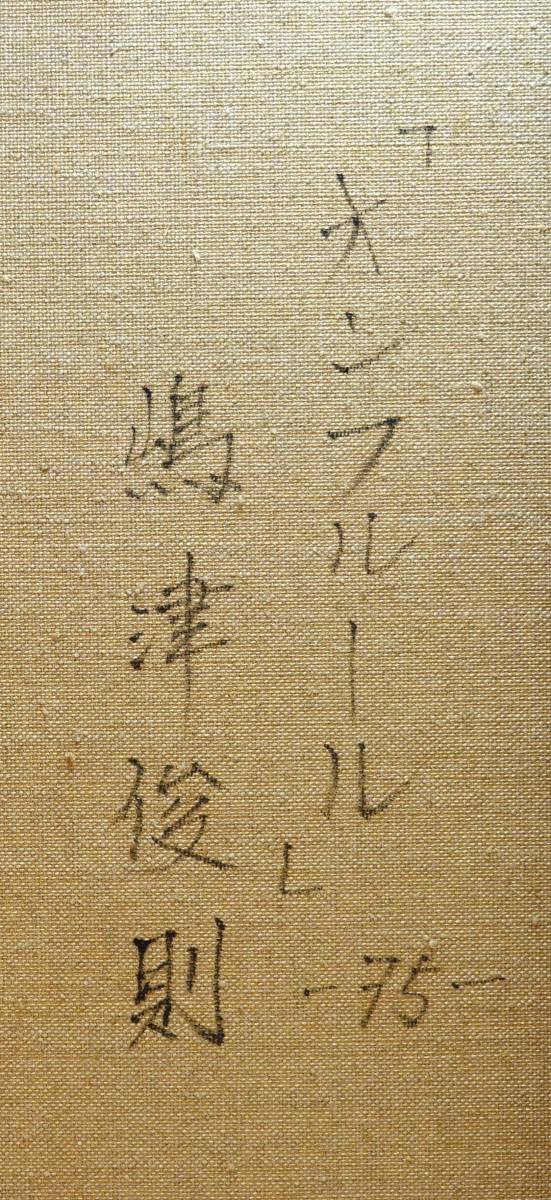 「オンフルール」-75-
嶋津俊則